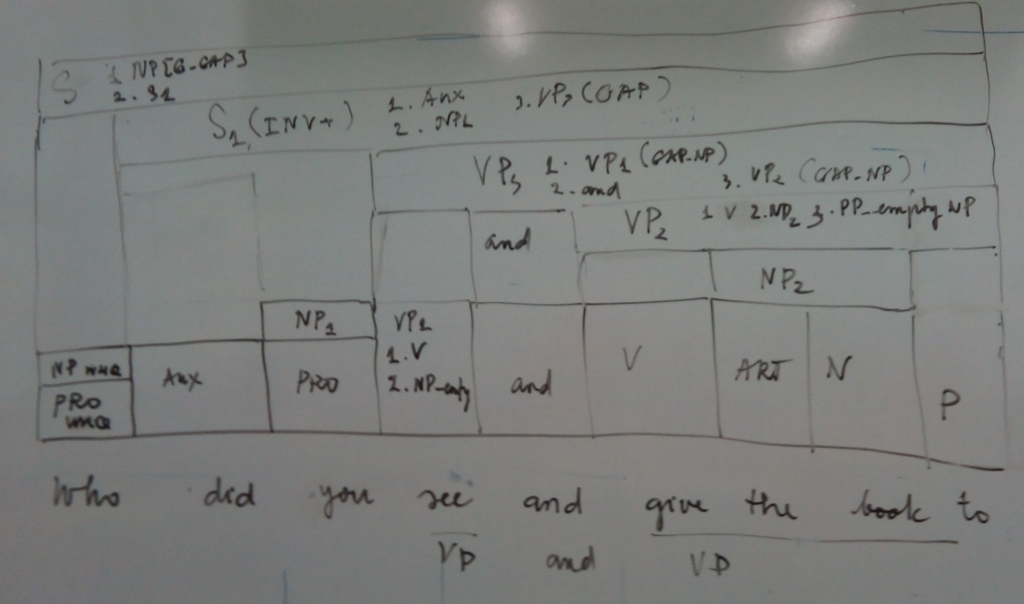 S 1 NP[G-GAP]
2. S1
S1 (INV+) 1. Aux 3. VP3 (GAP)
2. NP1
VP3 1. VP1 (GAP-NP)
2. and 3. VP2 (GAP-NP)
and VP2 1 V 2. NP2 3. PP_empty NP
NP2
NP1 VP1
NP WHQ Aux PRO 1. V and V ART N P
PRO WHQ 2. NP-empty
Who did you see and give the book to
VP and VP